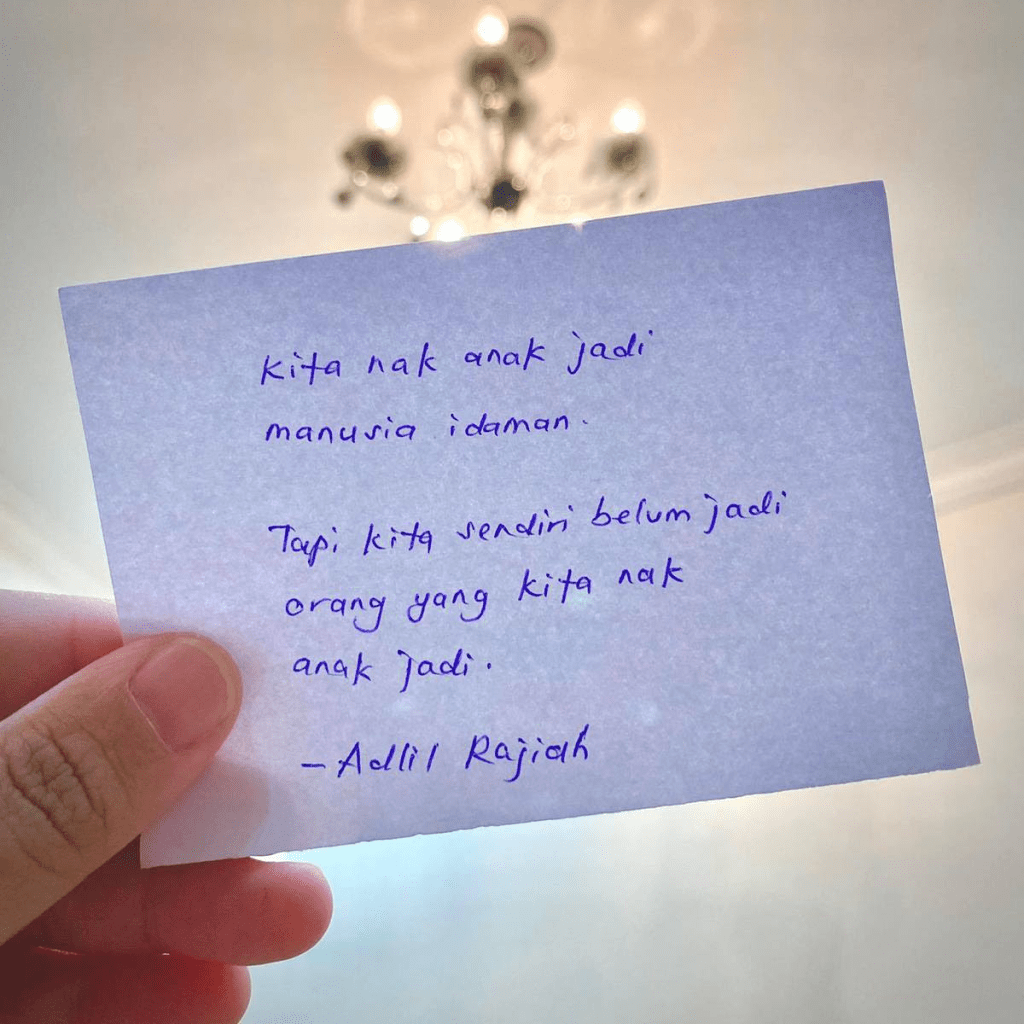 Kita nak anak jadi
manusia idaman.
Tapi kita sendiri belum jadi
orang yang kita nak
anak jadi.
- Adlil Rajiah